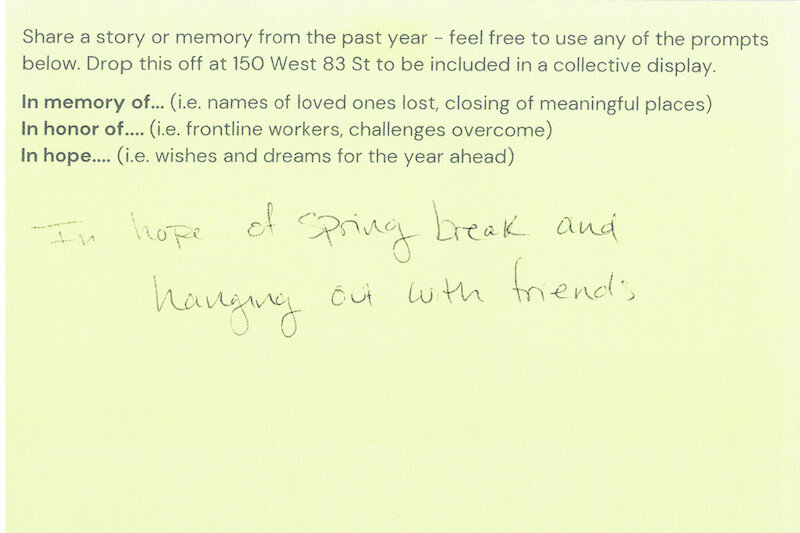 Share a story or memory from the past year – feel free to use any of the prompts
below. Drop this off at 150 West 83 St to be included in a collective display.
In memory of... (i.e. names of loved ones lost, closing of meaningful places)
In honor of.... (i.e. frontline workers, challenges overcome)
In hope.... (i.e. wishes and dreams for the year ahead)
In hope of spring break and
hanging out with friends